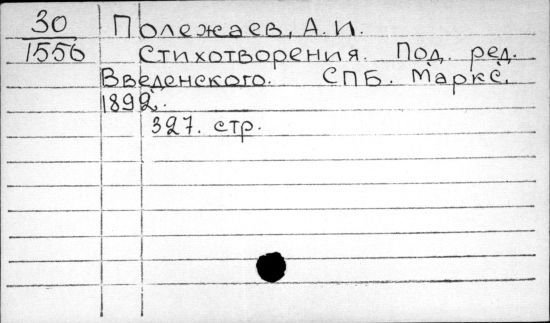 30 Полежаев, А. И.
1556 Стихотворения. Под. ред.
Введенского. СПБ. Маркс.
1892.
327. стр.